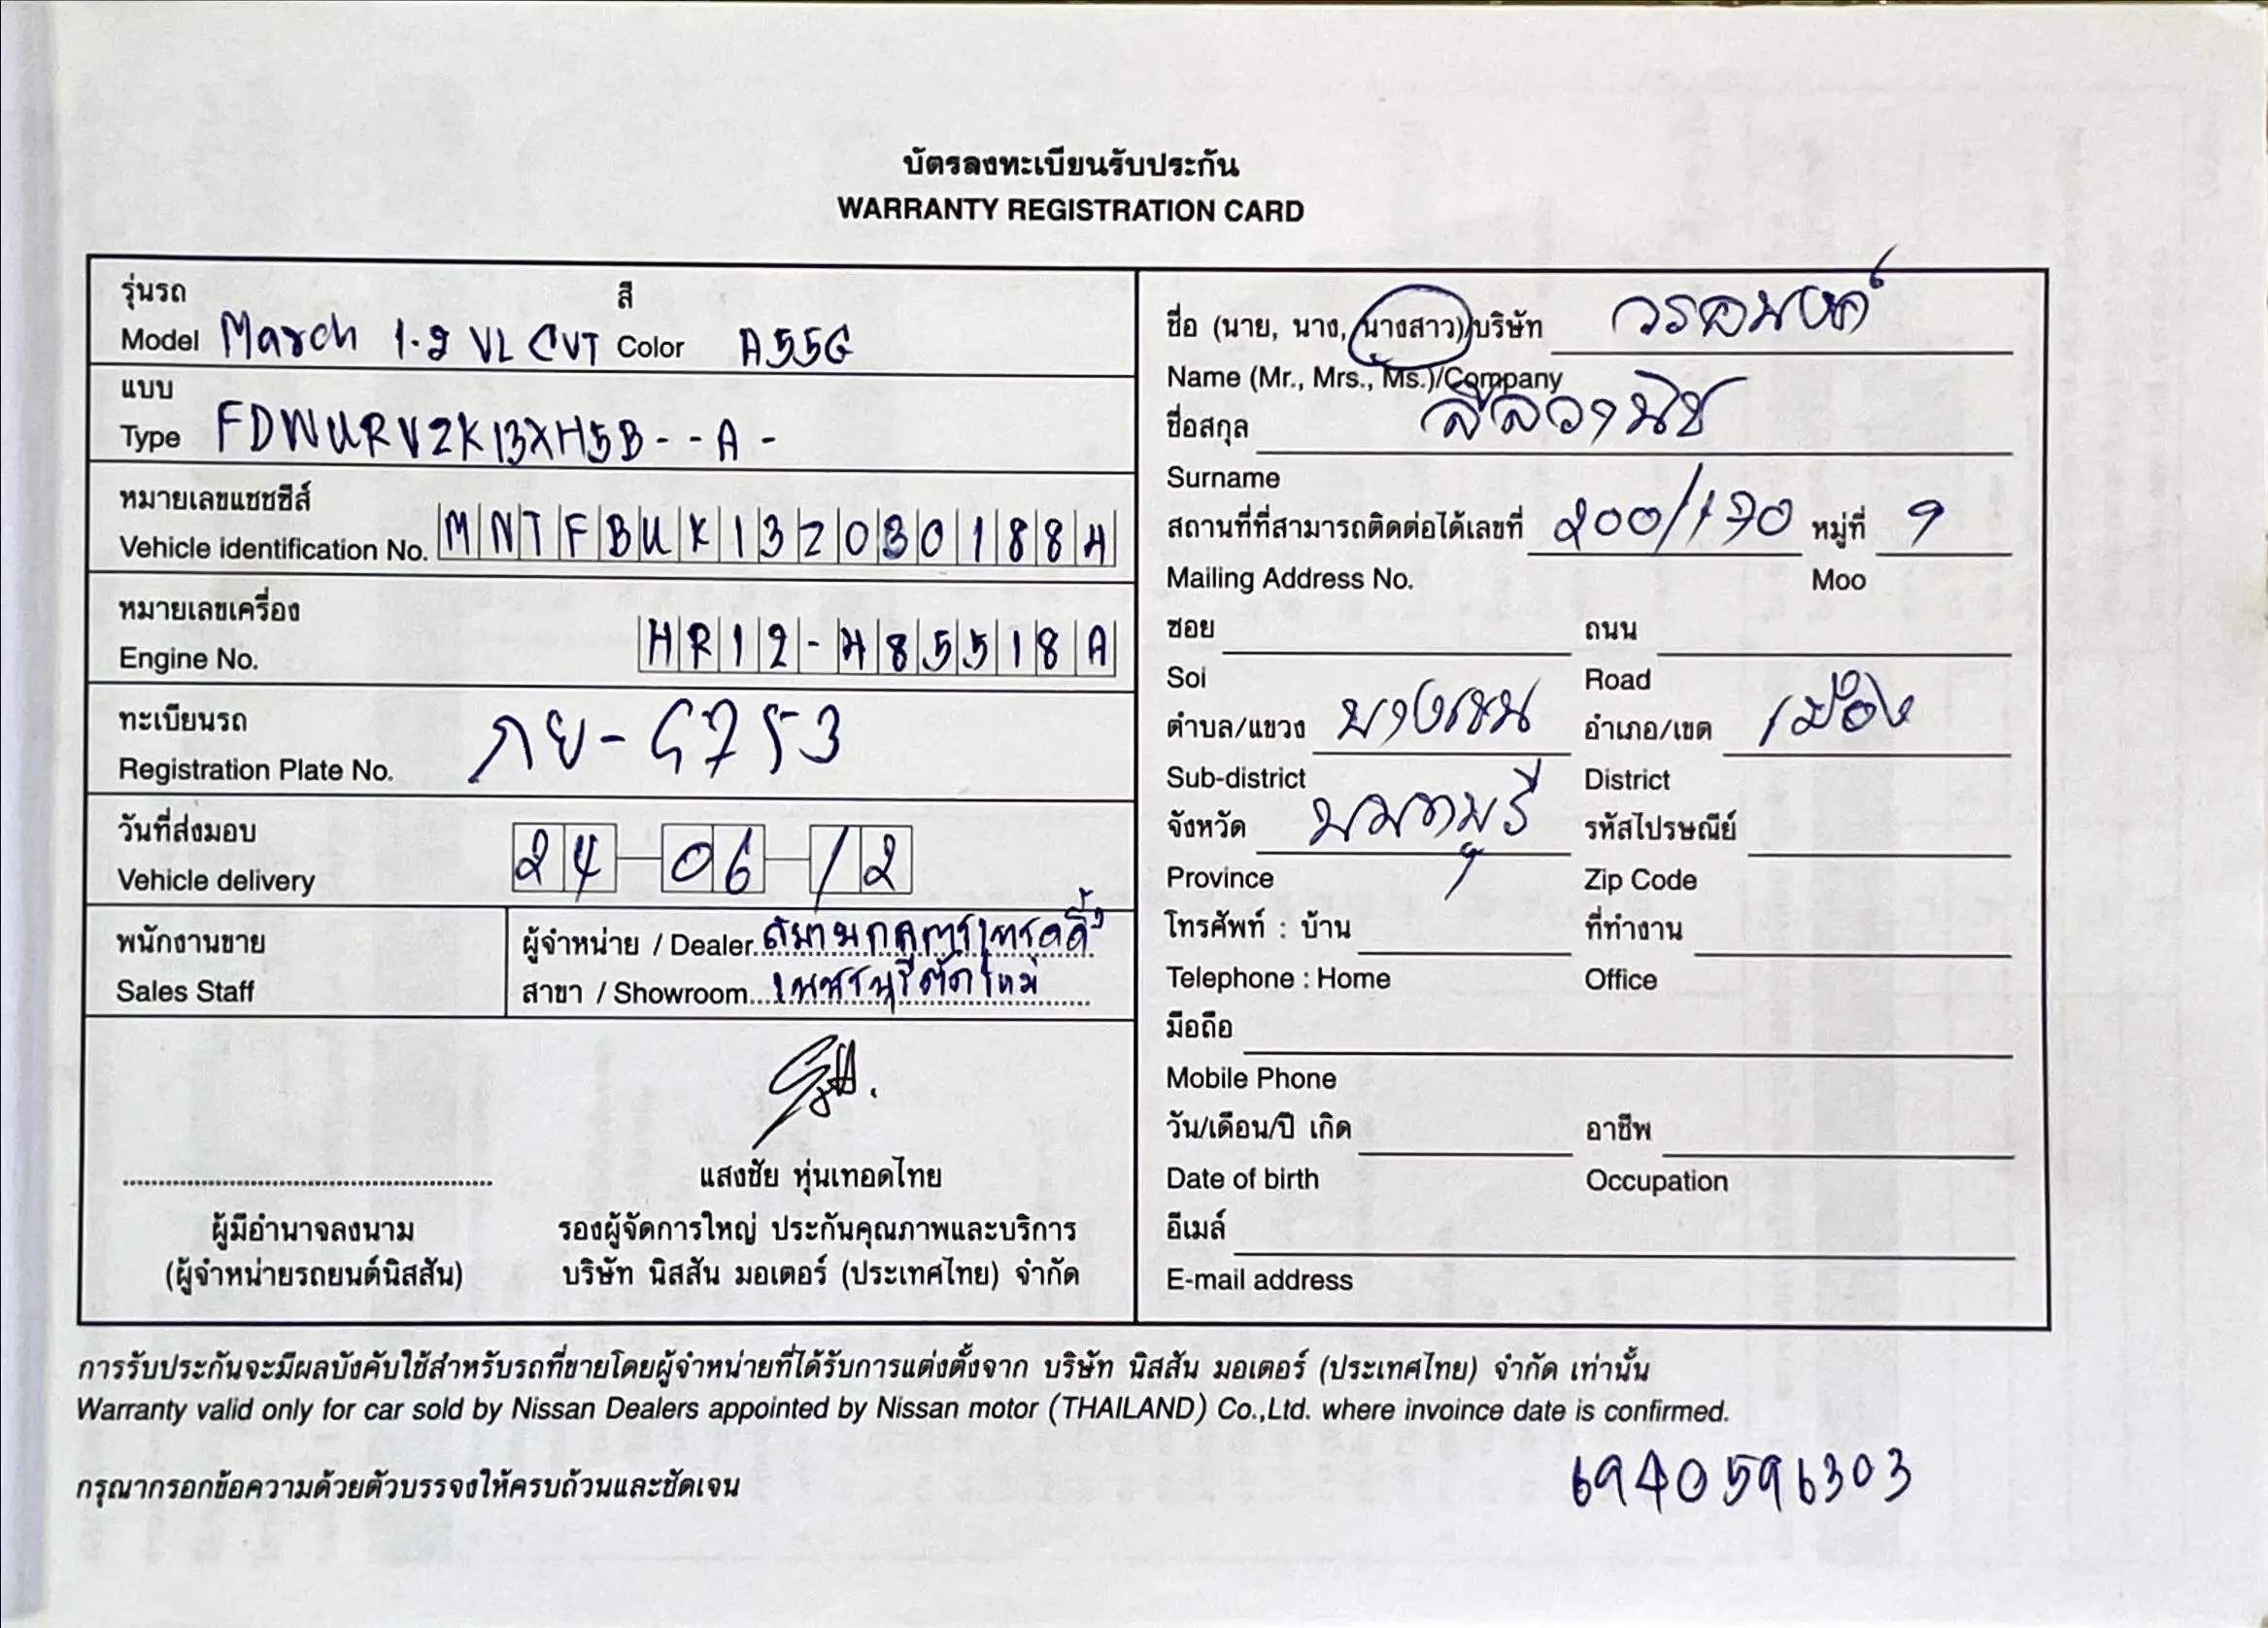 บัตรลงทะเบียนรับประกัน
WARRANTY REGISTRATION CARD
รุ่นรถ สี
Model March 1.2 VL CVT Color A55G
แบบ
Type FDWURV2K13XH5B--A-
หมายเลขแชชซีส์
Vehicle identification No. MNTFBUK13Z0301884
หมายเลขเครื่อง
Engine No. HR12-485518A
ทะเบียนรถ
Registration Plate No. ภย-4753
วันที่ส่งมอบ
Vehicle delivery 24-06-12
พนักงานขาย
Sales Staff
ผู้จำหน่าย / Dealer สยามกลการเทรดดิ้ง
สาขา / Showroom เพชรบุรีตัดใหม่
แสงชัย หุ่นเทอดไทย
ผู้มีอำนาจลงนาม รองผู้จัดการใหญ่ ประกันคุณภาพและบริการ
(ผู้จำหน่ายรถยนต์นิสสัน) บริษัท นิสสัน มอเตอร์ (ประเทศไทย) จำกัด
ชื่อ (นาย, นาง, นางสาว)/บริษัท
Name (Mr., Mrs., Ms.)/Company
ชื่อสกุล ลีลวานิช
Surname
สถานที่ที่สามารถติดต่อได้เลขที่ 200/170 หมู่ที่ 9
Mailing Address No. Moo
ซอย ถนน
Soi Road
ตำบล/แขวง บางเขน อำเภอ/เขต เมือง
Sub-district District
จังหวัด นนทบุรี รหัสไปรษณีย์
Province Zip Code
โทรศัพท์ : บ้าน ที่ทำงาน
Telephone : Home Office
มือถือ
Mobile Phone
วัน/เดือน/ปี เกิด อาชีพ
Date of birth Occupation
อีเมล์
E-mail address
การรับประกันจะมีผลบังคับใช้สำหรับรถที่ขายโดยผู้จำหน่ายที่ได้รับการแต่งตั้งจาก บริษัท นิสสัน มอเตอร์ (ประเทศไทย) จำกัด เท่านั้น
Warranty valid only for car sold by Nissan Dealers appointed by Nissan motor (THAILAND) Co.,Ltd. where invoince date is confirmed.
กรุณากรอกข้อความด้วยตัวบรรจงให้ครบถ้วนและชัดเจน
6940596303